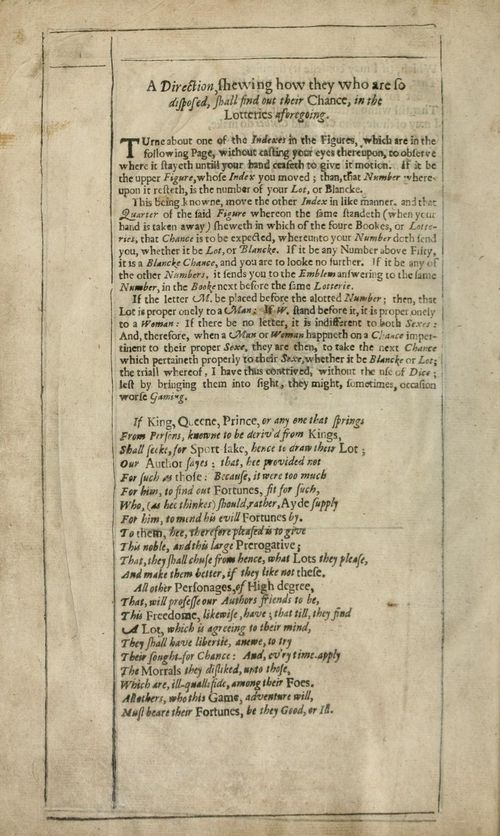 A Direction, shewing how they who are so
disposed, shall find out their Chance, in the
Lotteries aforegoing.
TUrne about one of the Indexes in the Figures, which are in the
following Page, without casting your eyes thereupon, to observe
where it stayeth untill your hand ceaseth to give it motion. If it be
the upper Figure, whose Index you moved; than, that Number where-
upon it resteth, is the number of your Lot, or Blancke.
This being knowne, move the other Index in like manner, and that
Quarter of the said Figure whereon the same standeth (when your
hand is taken away) sheweth in which of the foure Bookes, or Lotte-
ries, that Chance is to be expected, whereunto your Number doth send
you, whether it be Lot, or Blancke. If it be any Number above Fifty,
it is a Blancke Chance, and you are to looke no further. If it be any of
the other Numbers, it sends you to the Emblem answering to the same
Number, in the Booke next before the same Lotterie.
If the letter M. be placed before the alotted Number; then, that
Lot is proper onely to a Man: If W. stand before it, it is proper onely
to a Woman: If there be no letter, it is indifferent to both Sexes:
And, therefore, when a Man or Woman happneth on a Chance imper-
tinent to their proper Sexe, they are then, to take the next Chance
which pertaineth properly to their Sexe, whether it be Blancke or Lot;
the triall whereof, I have thus contrived, without the use of Dice;
lest by bringing them into sight, they might, sometimes, occasion
worse Gaming.
If King, Queene, Prince, or any one that springs
From Persons, knowne to be deriv'd from Kings,
Shall seeke, for Sport sake, hence to draw their Lot;
Our Author sayes: that, hee provided not
For such as those: Because, it were too much
For him, to find out Fortunes, fit for such,
Who, (as hee thinkes) should, rather, Ayde supply
For him, to mend his evill Fortunes by.
To them, hee, therefore pleased is to give
This noble, and this large Prerogative;
That, they shall chuse from hence, what Lots they please,
And make them better, if they like not these.
All other Personages, of High degree,
That, will professe our Authors friends to be,
This Freedome, likewise, have; that till, they find
A Lot, which is agreeing to their mind,
They shall have libertie, anewe, to try
Their sought-for Chance: And, ev'ry time apply
The Morrals they disliked, unto those,
Which are, ill-quallifide, among their Foes.
All others, who this Game, adventure will,
Must beare their Fortunes, be they Good, or Ill.